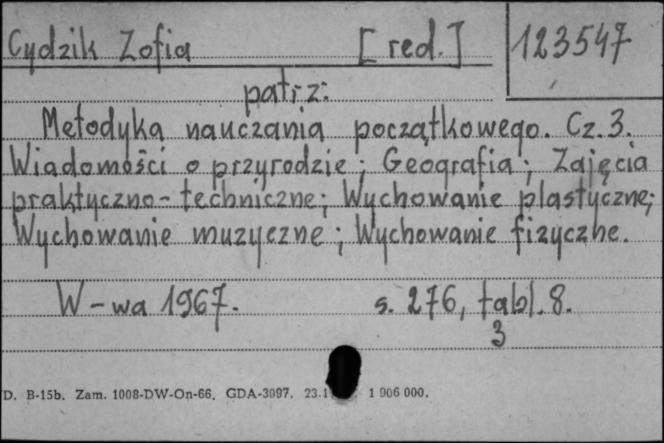 Cydzik Zofia [red.] 123547
patrz:
Metodyka nauczania początkowego. Cz. 3.
Wiadomości o przyrodzie; Geografia; Zajęcia
praktyczno-techniczne; Wychowanie plastyczne;
Wychowanie muzyczne; Wychowanie fizyczne.
W-wa 1967. s. 276, tabl. 8.
3
D. B-15b. Zam. 1008-DW-On-66. GDA-3097. 23.1 1 906 000.